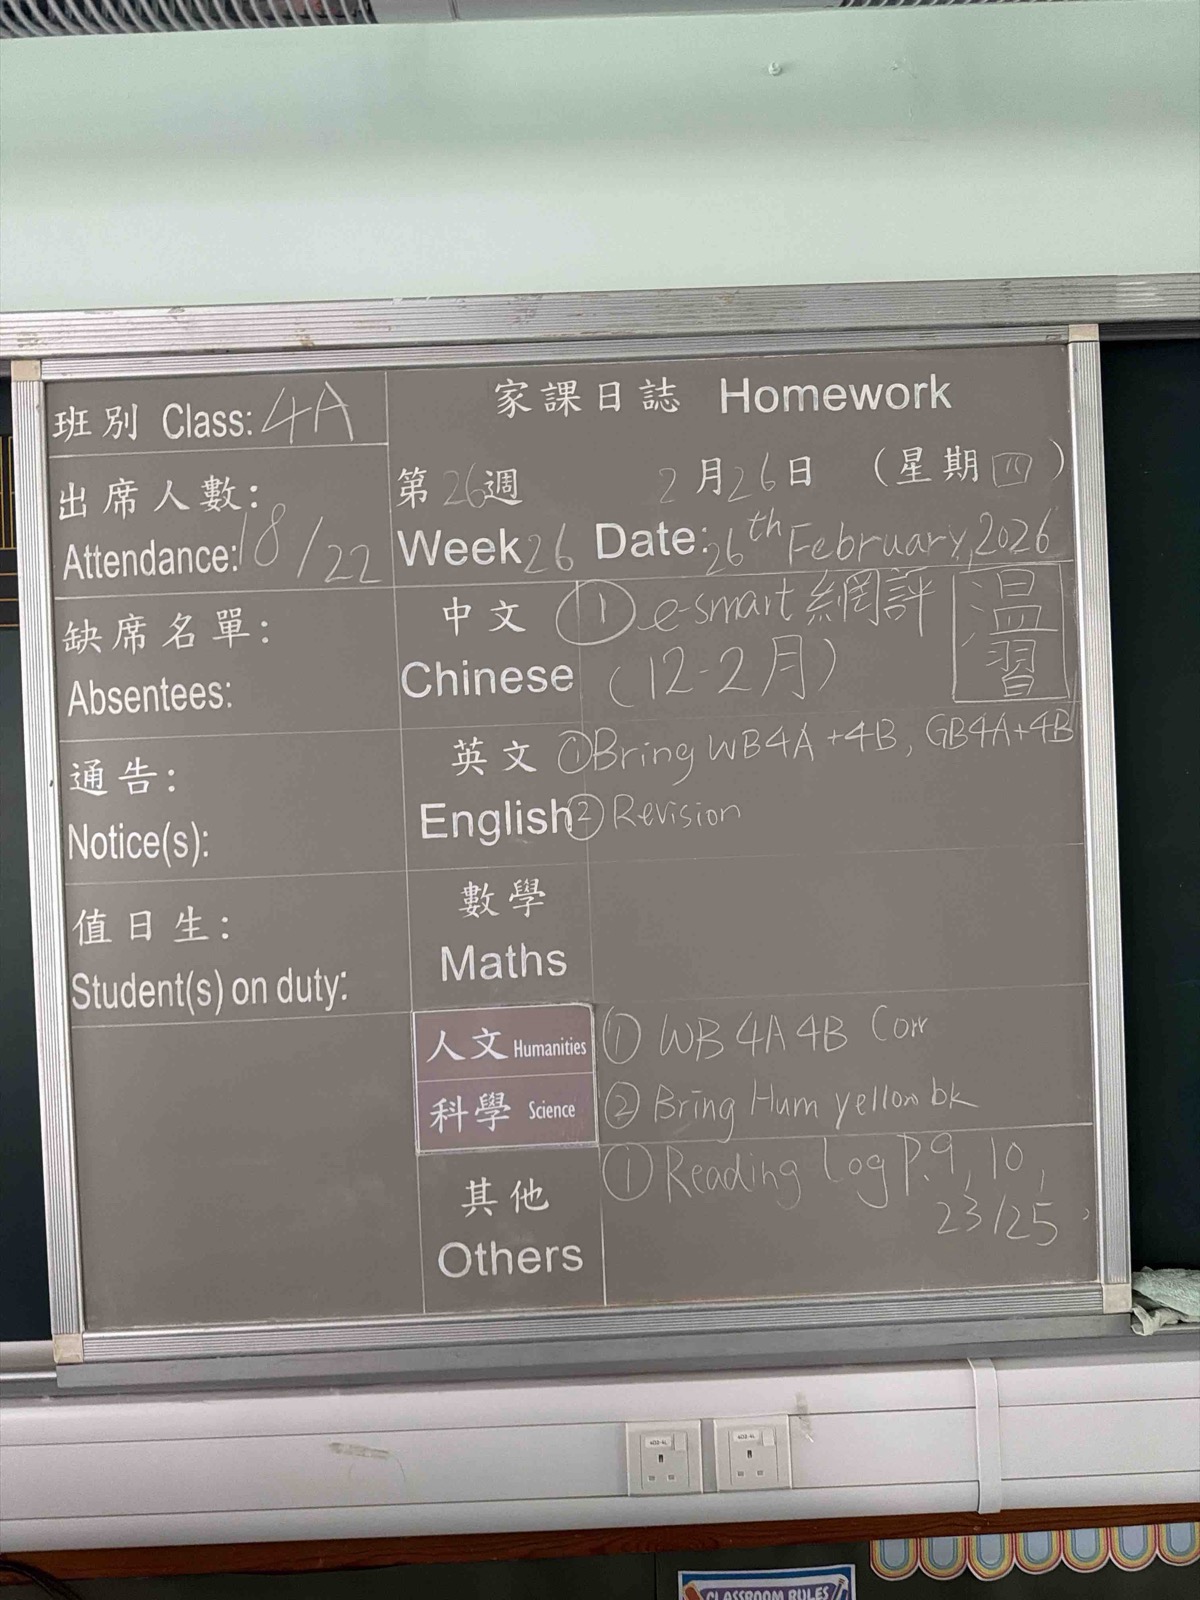 班別 Class: 4A
出席人數:
Attendance: 18/22
缺席名單:
Absentees:
通告:
Notice(s):
值日生:
Student(s) on duty:
家課日誌 Homework
第26週 2月26日 (星期四)
Week 26 Date: 26th February, 2026
中文
Chinese
① e-smart 網評
(12-2月)
溫習
英文
English
① Bring WB4A+4B, GB4A+4B
② Revision
數學
Maths
人文 Humanities
科學 Science
① WB 4A 4B Corr
② Bring Hum yellow bk
其他
Others
① Reading Log P.9, 10,
23/25
CLASSROOM RULES